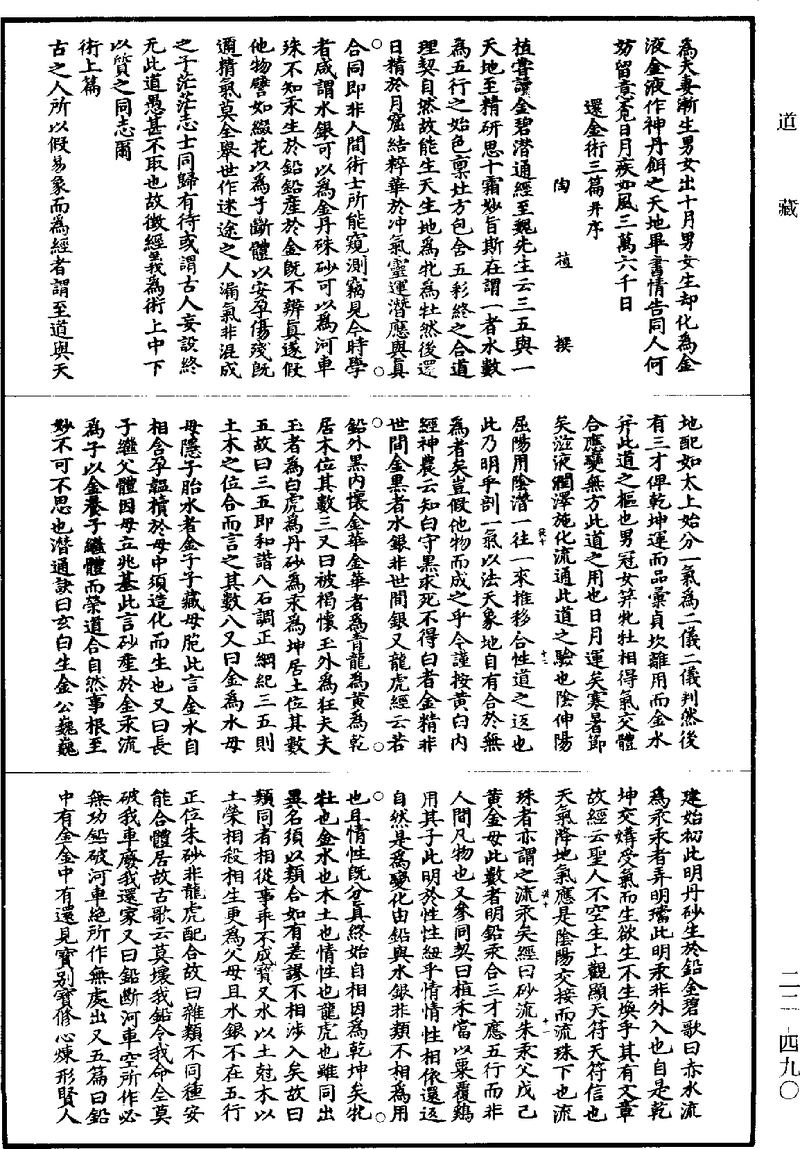 道藏
為夫妻漸生男女出十月男女生却化為金
液金液作神丹餌之天地畢書情告同人何
妨留意究日月疾如風三萬六千日
還金術三篇并序
陶植撰
植嘗讀金碧潛通經至魏先生云三五與一
天地至精研思十霜妙旨斯在謂一者水數
為五行之始色稟北方包含五彩終之合道
理契自然故能生天生地為牝為牡然後還
日精於月窟結粹華於冲氣靈運潛應與真
合同即非人間術士所能窺測竊見今時學
者咸謂水銀可以為金丹硃砂可以為河車
殊不知汞生於鉛鉛產於金既不辨真遂假
他物譬如綴花以為子斷體以安孕傷殘既
邇精氣莫全舉世作迷途之人漏氣非混成
之子茫茫志士同歸有待或謂古人妄設終
无此道愚甚不取也故徵經義為術上中下
以質之同志爾
術上篇
古之人所以假易象而為經者謂至道與天
地配如太上始分一氣為二儀二儀判然後
有三才俾乾坤運而品彙貞坎離用而金水
并此道之樞也男冠女筓牝牡相得氣交體
合應變無方此道之用也日月運矣寒暑節
矣滋液潤澤施化流通此道之驗也陰伸陽
屈陽用陰潛一往一來推移合性道之返也
此乃明乎剖一氣以法天象地自有合於無
為者矣豈假他物而成之乎今謹按黃白內
經神農云知白守黑求死不得白者金精非
世間金黑者水銀非世間銀又龍虎經云若
鉛外黑內懷金華金華者為青龍為黃為乾
居木位其數三又曰被褐懷玉外為狂夫夫
玉者為白虎為丹砂為汞為坤居土位其數
五故曰三五即和諧八石調正綱紀三五則
土木之位合而言之其數八又曰金為水母
母隱子胎水者金子子藏母胞此言金水自
相含孕韞櫝於母中須造化而生也又曰長
子繼父體因母立兆基此言砂產於金汞流
為子以金養子繼體而榮道合自然事根至
妙不可不思也潛通訣曰玄白生金公巍巍
建始初此明丹砂生於鉛金碧歌曰赤水流
為汞汞者弄明璫此明汞非外入也自是乾
坤交媾受氣而生欲生不生煥乎其有文章
故經云聖人不空生上觀顯天符天符信也
天氣降地氣應是陰陽交接而流珠下也流
珠者亦謂之流汞矣經曰砂流朱汞父戊己
黃金母此數者明鉛汞合三才應五行而非
人間凡物也又參同契曰植禾當以粟覆鷄
用其子此明於性性紐乎情情性相依還返
自然是為變化由鉛與水銀非類不相為用
也且情性既分真終始自相因為乾坤矣牝
牡也金水也木土也情性也龍虎也雖同出
異名須以類合如有差謬不相涉入矣故曰
類同者相從事乖不成寶又水以土尅木以
土榮相殺相生更為父母且水銀不在五行
正位朱砂非龍虎配合故曰雜類不同種安
能合體居故古歌云莫壞我鉛令我命全莫
破我車廢我還家又曰鉛斷河車空所作必
無功鉛破河車絕所作無處出又五篇曰鉛
中有金金中有還見寶別寶修心煉形賢人
二二·四九〇